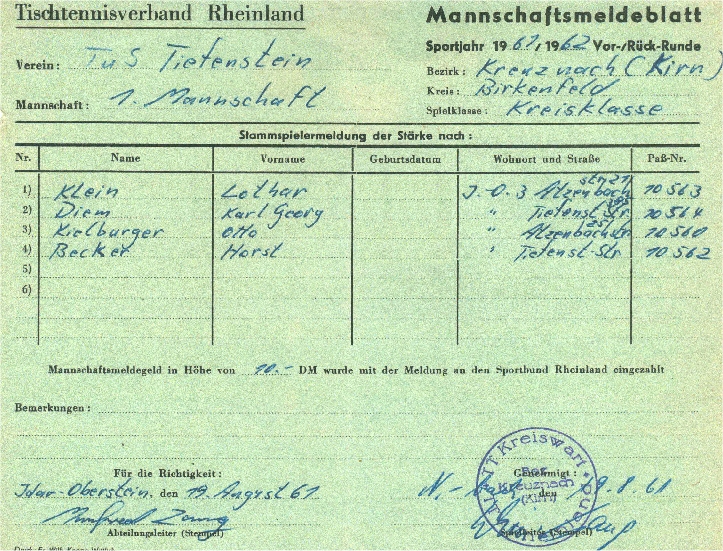 Tischtennisverband Rheinland
Mannschaftsmeldeblatt
Sportjahr 1961/1962 Vor-/Rück-Runde
Verein: TuS Tiefenstein
Bezirk: Kreuznach (Kirn)
Kreis: Birkenfeld
Mannschaft: 1. Mannschaft
Spielklasse: Kreisklasse
Stammspielermeldung der Stärke nach:
Nr. Name Vorname Geburtsdatum Wohnort und Straße Paß-Nr.
1) Klein Lothar J.-O. 3 Atzenbach 10563
2) Diem Karl Georg " Tiefenst. Str. 10564
3) Kielburger Otto " Atzenbachstr 10560
4) Becker Horst " Tiefenst-Str 10562
5)
6)
Mannschaftsmeldegeld in Höhe von 10.- DM wurde mit der Meldung an den Sportbund Rheinland eingezahlt
Bemerkungen:
Für die Richtigkeit:
Genehmigt:
Kreiswart
Bez.
Kreuznach
(Kirn)
Idar-Oberstein, den 19. August 61
den 19.8.61
Manfred
Abteilungsleiter (Stempel)
(Stempel)